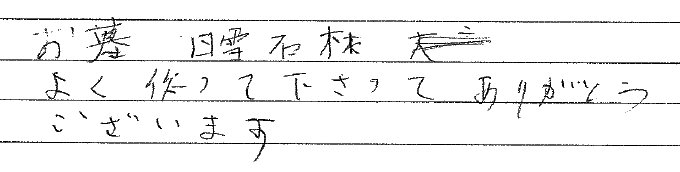 お墓
よく作って下さって ありがとう
ございます